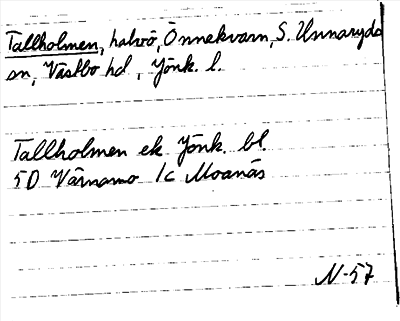 Tallholmen, halvö, Önnekvarn, S. Unnaryds
sn, Västbo hd, Jönk. l.
Tallholmen ek Jönk. bl.
5D Värnamo 1c Moanäs
N-57